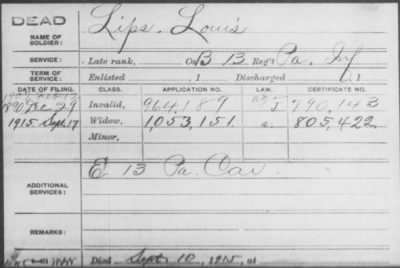 DEAD
NAME OF SOLDIER: Lips, Louis
SERVICE: Late rank, Co. B 13 Reg't Pa. Inf
TERM OF SERVICE: Enlisted , 1 Discharged , 1
DATE OF FILING. CLASS. APPLICATION NO. LAW. CERTIFICATE NO.
1890 Dec 29 Invalid, 964189 J 790,143
1915 Sept 17 Widow, 1,053,151 a. 805,422
Minor,
ADDITIONAL SERVICES: E 13 Pa. Cav.
REMARKS:
Died Sept 10, 1915, at